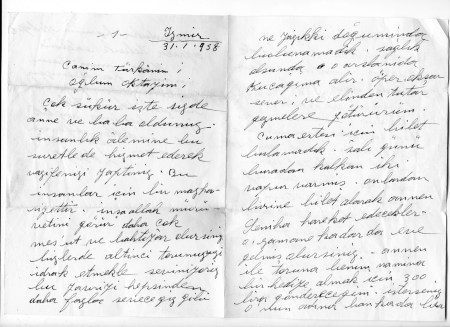 - 1 -
İzmir
31.1.958
Canım
Oğlum Oktayım;
Çok şükür işte sizde
anne ve baba oldunuz.
insanlık âlemine bu
suretle de hizmet ederek
vazifenizi yaptınız. Bu
insanlar için bir
insallah
daha çok
mes'ut ve bahtiyar olursunuz
bizlerde altıncı torunumuzu
idrak etmekle
hepsinden
daha fazla seveceğiz
ne yapıkki düğünümüzde
bulunamadık. sağlık
olsunda o
kucağıma alır. öper okşar
sever; ve elinden tutar
gezmelere götürürüm.
Cumaertesi için bilet
bulamadık. salı günü
buradan kalkan iki
vapur varmış. onlardan
birine bilet alarak annen
Semiha hareket edecekler.
o zamana kadarda eve
gelmiş olursunuz. annen
ile toruna benim namıma
bir hediye almak için 300
lira göndereceğim. isterseniz
bankada